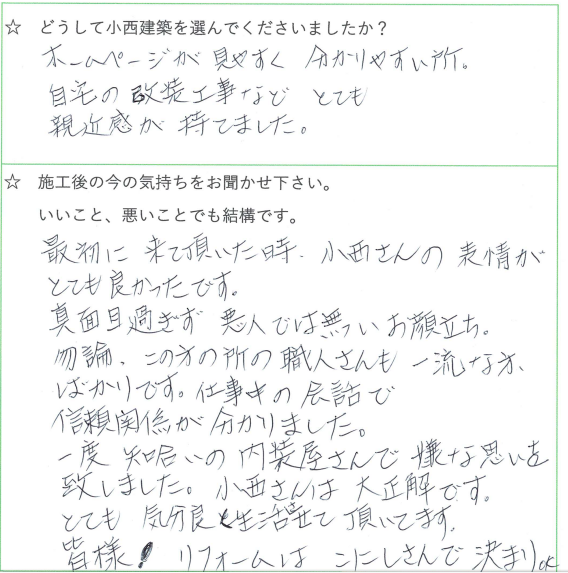 ☆ どうして小西建築を選んでくださいましたか？
ホームページが 見やすく 分かりやすい所。
自宅の 改装工事など とても
親近感が 持てました。
☆ 施工後の今の気持ちをお聞かせ下さい。
いいこと、悪いことでも結構です。
最初に 来て頂いた時、小西さんの 表情が
とても良かったです。
真面目過ぎず 悪人では無い お顔立ち。
勿論、この方の所の 職人さんも 一流な方、
ばかりです。仕事中の 会話で
信頼関係が 分かりました。
一度 知合いの 内装屋さんで 嫌な思いを
致しました。小西さんは 大正解です。
とても 気分良く生活させて 頂いてます。
皆様! リフォームは こにしさんで 決まりOK